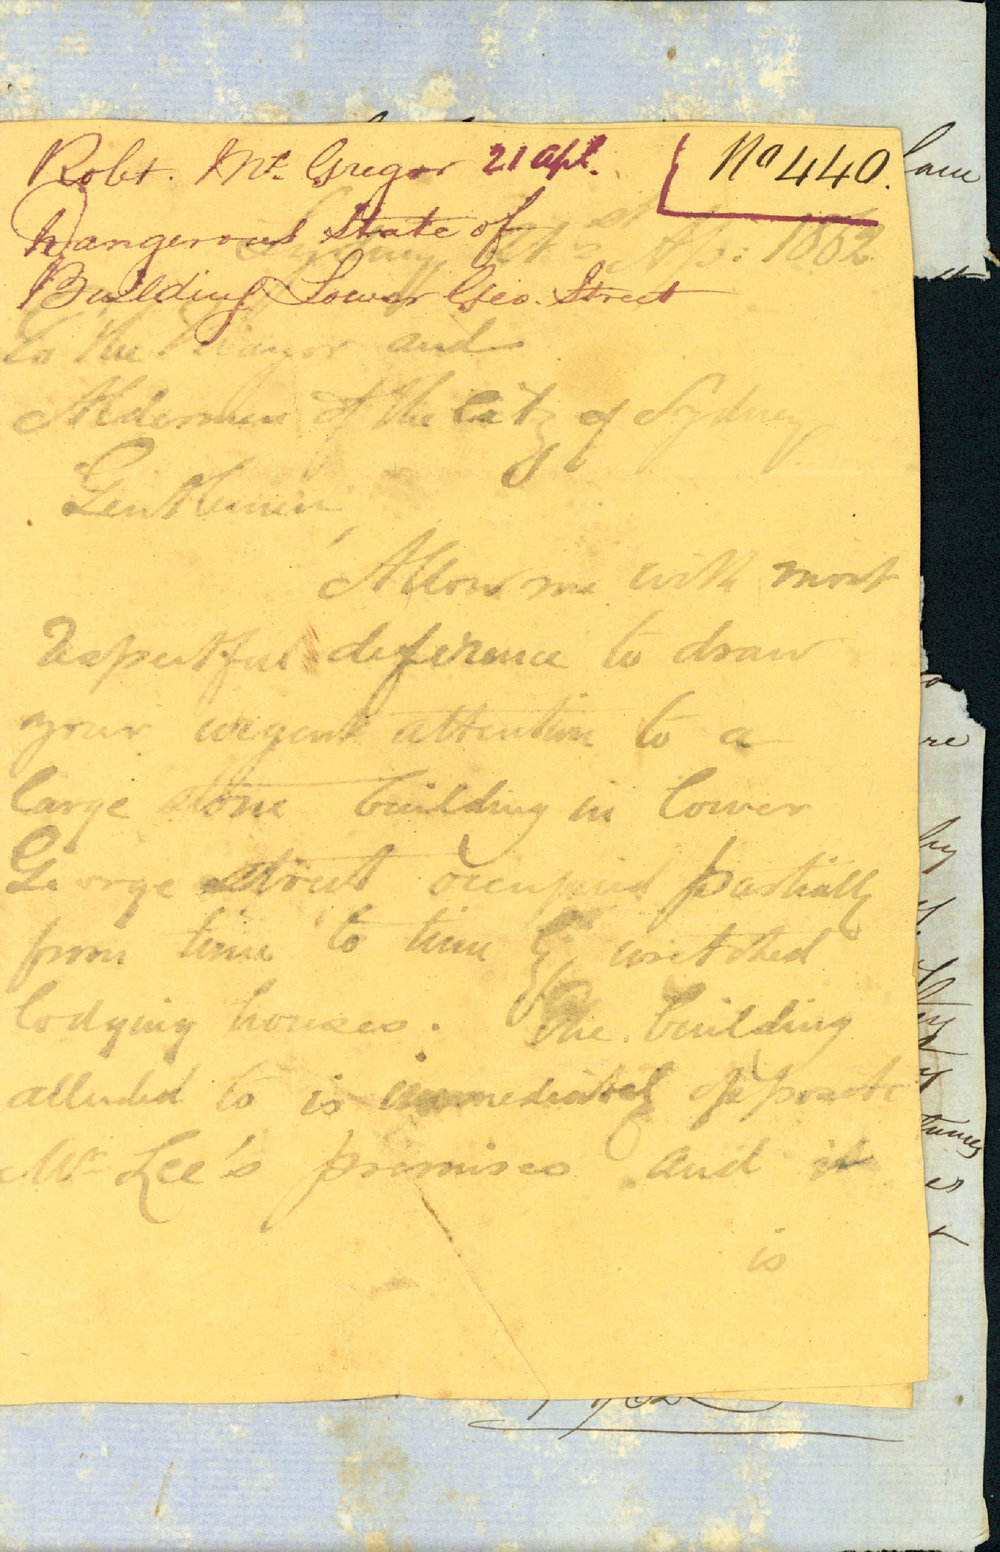 Robt. Mc. Gregor 21 Apl.
No 440.
Dangerous State of
Building Lower Geo. Street
Sydney 21st Ap: 1862
To the Mayor and
Aldermen of the City of Sydney
Gentlemen,
Allow me with most
respectful deference to draw
your urgent attention to a
large stone building in lower
George street occupied partially
from time to time by wretched
lodging houses. The building
alluded to is immediately opposite
Mr Lee's premises and it
is
lane
re
by